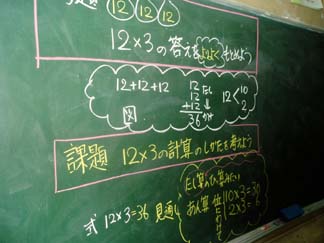 12 12 12
12×3の答えを よく もとめよう
12+12+12
図
12
12
+12
36
たし
↓
かけ
12<10
2
課題 12×3の計算のしかたを考えよう
式 12×3=36 見通し
たし算の
あん算
10×3=30
2×3=6